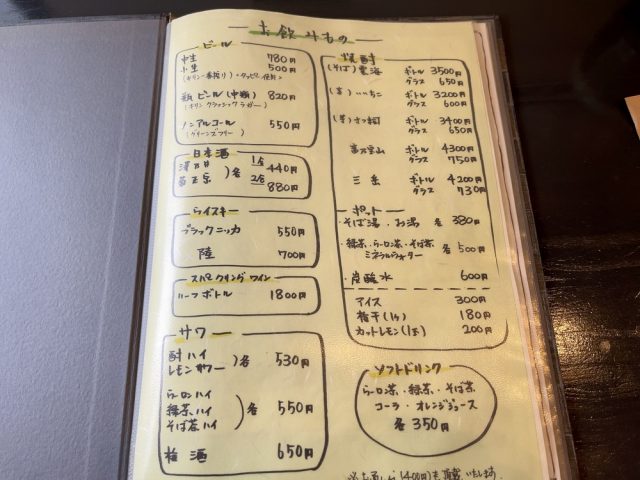 お飲みもの
ビール
中生 780円
小生 500円
(キリン一番搾り)
瓶ビール(中瓶) 820円
(キリンクラシックラガー)
ノンアルコール 550円
(グリーンズフリー)
日本酒
澤乃井 1合 440円
各 2合 880円
ウイスキー
ブラックニッカ 550円
陸 700円
スパークリングワイン
ハーフボトル 1800円
サワー
酎ハイ
レモンサワー 各 530円
ウーロンハイ
緑茶ハイ 各 550円
そば茶ハイ
梅酒 650円
焼酎
(そば) 雲海 ボトル 3500円
グラス 650円
(麦) いいちこ ボトル 3200円
グラス 600円
(芋) ボトル 3400円
グラス 650円
富乃宝山 ボトル 4300円
グラス 750円
三岳 ボトル 4200円
グラス 730円
ポット
・そば湯・お湯 各 380円
・緑茶・ウーロン茶・そば茶 各 500円
ミネラルウォーター
・炭酸水 600円
アイス 300円
梅干(1ケ) 180円
カットレモン(1ヶ) 200円
ソフトドリンク
ウーロン茶・緑茶・そば茶
コーラ・オレンジジュース
各 350円
(400円)を頂戴いたします。